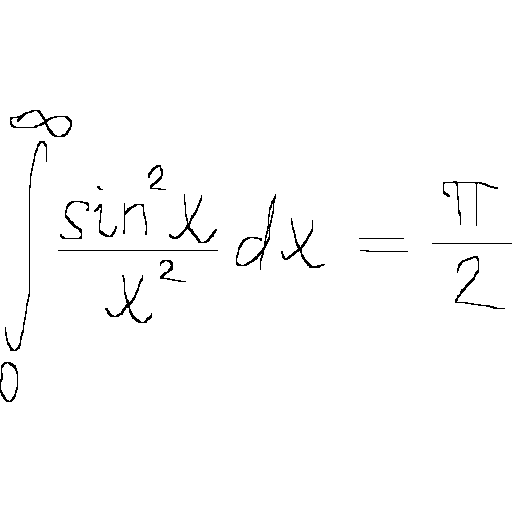 \int_0^\infty \frac{\sin^2 x}{x^2} dx = \frac{\pi}{2}